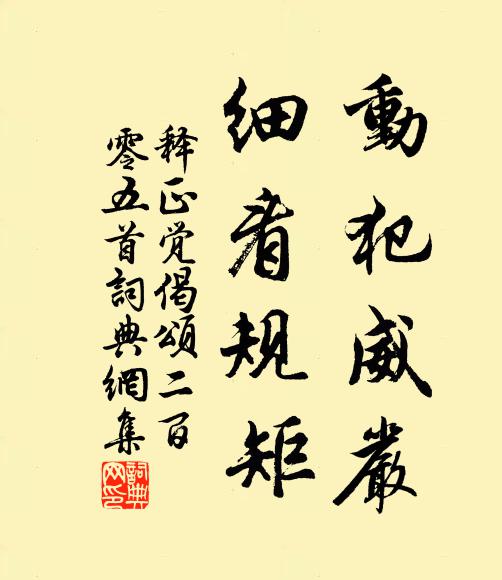 動犯威嚴
細看規矩
释正觉偈頌二百
零五首詞典網集
詞典
网印